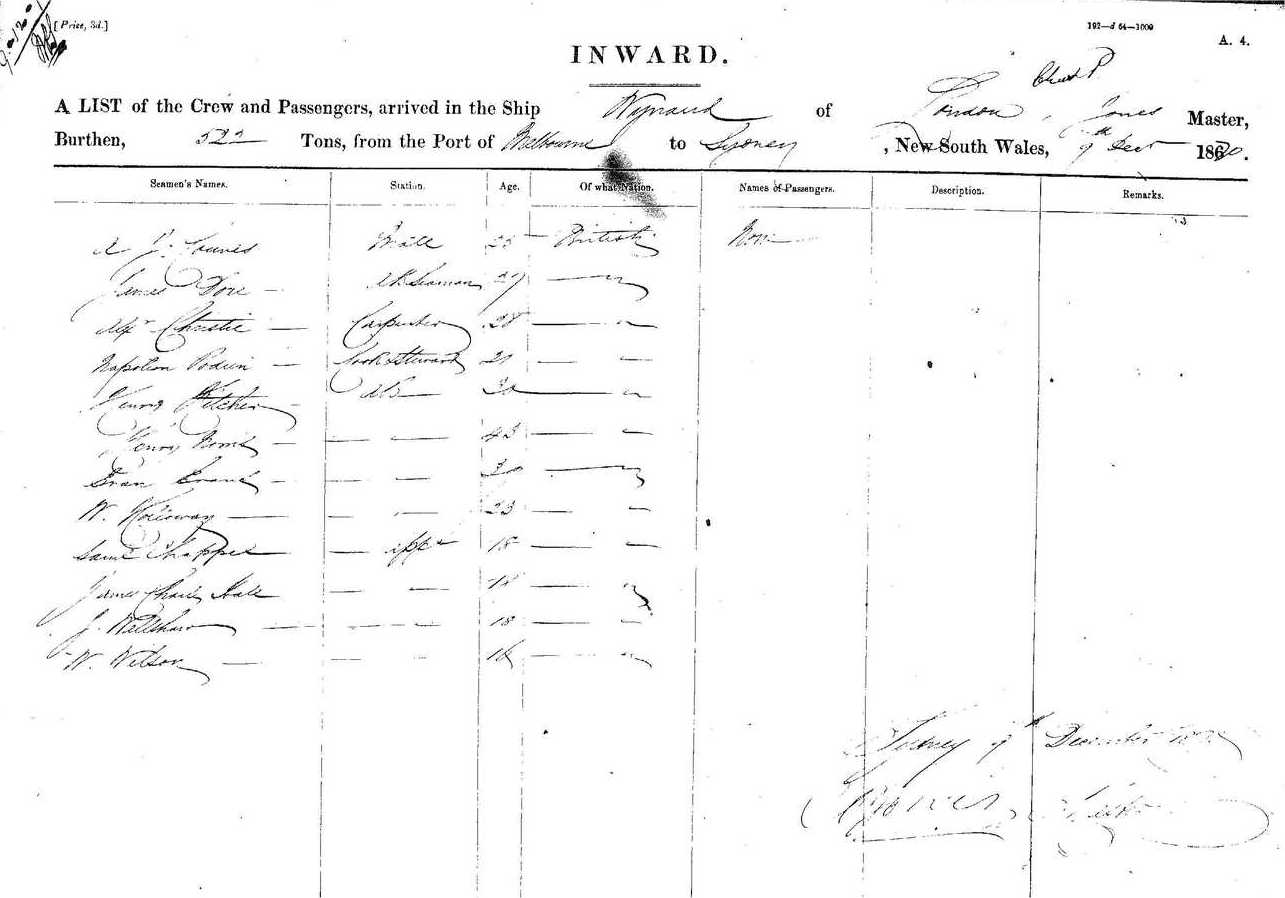 [Price, 3d.]
192—d 64—1000
A. 4.
INWARD.
A LIST of the Crew and Passengers, arrived in the Ship Wynaud of London, Chas P Jones Master,
Burthen, 522 Tons, from the Port of Melbourne to Sydney, New South Wales, 9th Decr 1870.
Seamen's Names. Station. Age. Of what Nation. Names of Passengers. Description. Remarks.
Mate 25 British None
James Dore — AB Seaman 27 — "
Alexr Christie — Carpenter 28 — "
Napoleon — Cook & Steward 21 — "
Henry Kitcher — AB — 30 — "
Henry — — — 43 — "
Evan Evans — — — 30 — "
W. Holloway — — — 23 — "
Saml — appe 18 — "
James Charles Hall — — 18 "
J. Wallshaw — — — 18 — "
W. Wilson — — — 16 — "
Sydney 9th December